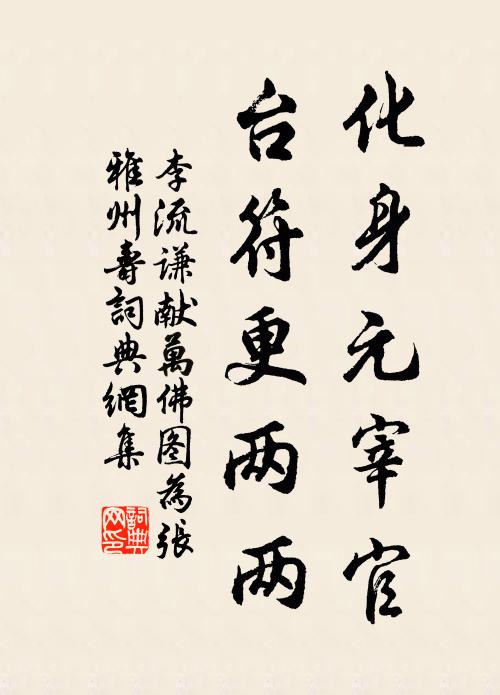 化身元宰官
台符更两两
李流谦献萬佛图為張
雅州壽詞典網集
詞典网印